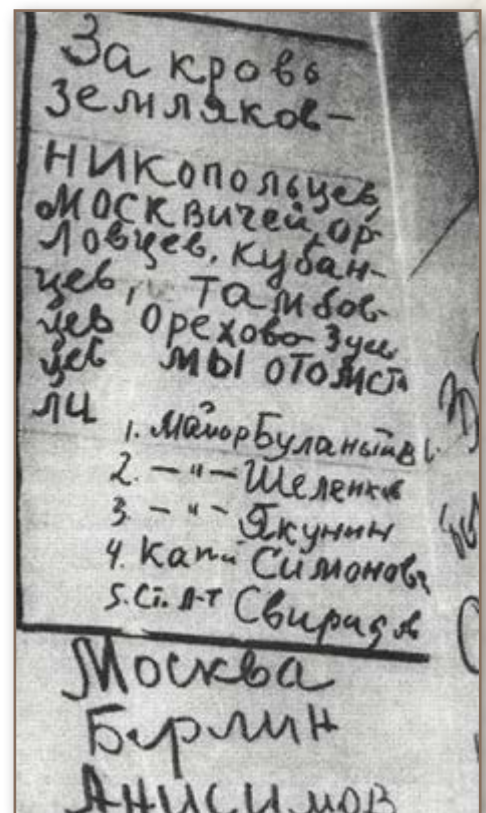 За кровь
земляков-
НИКОПОЛЬЦЕВ,
МОСКВИЧЕЙ, ОР-
ЛОВЦЕВ, КУБАН-
цев, ТАМБОВ-
цев Орехово-Зуев
цев МЫ ОТОМСТИ
ЛИ
1. Майор Буланый
2. — " — Шеленков
3. — " — Якунин
4. Кап Симонов
5. Ст. Л-Т
Москва
Берлин
Анисимов